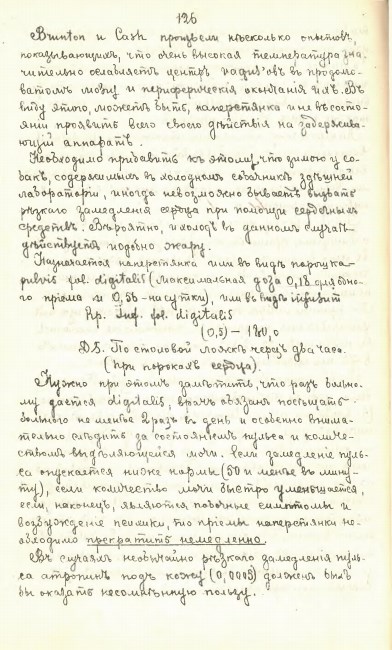 126
Brunton и Cash произвели нѣсколько опытовъ,
показывающихъ, что очень высокая температура зна-
чительно ослабляетъ центръ vagus'овъ въ продолго-
ватомъ мозгу и периферическія окончанія
виду этого, можетъ быть, наперстянка и не въ состо-
яніи проявить всего своего дѣйствія на задержива-
ющій аппаратъ.
Необходимо прибавить къ этому, что зимою у со-
бакъ, содержимыхъ въ холодномъ собачникѣ здѣшней
лабораторіи, иногда невозможно бываетъ вызвать
рѣзкаго замедленія сердца при помощи сердечныхъ
средствъ. Вѣроятно, и холодъ въ данномъ случаѣ
дѣйствуетъ подобно жару.
Назначается наперстянка или въ видѣ порошка-
pulvis fol. digitalis (максимальная доза 0,18 для одно-
го пріема и 0,56 - на сутки), или въ видѣ
Rp. Inf. fol. digitalis
(0,5) - 180,0
D.S. По столовой ложкѣ черезъ два часа.
(При порокахъ сердца).
Нужно при этомъ замѣтить, что разъ больно-
му дается digitalis, врачъ обязанъ посѣщать
больного не менѣе 2 разъ въ день и особенно внима-
тельно слѣдить за состояніемъ пульса и количе-
ствомъ выдѣляющейся мочи. Если замедленіе пуль-
са опускается ниже нормы (50 и менѣе въ мину-
ту), если количество мочи быстро уменьшается,
если, наконецъ, являются побочные симптомы и
возбужденіе психики, то пріемы наперстянки не-
обходимо прекратить немедленно.
Въ случаяхъ необычайно рѣзкаго замедленія пуль-
са атропинъ подъ кожу (0,0005) долженъ былъ
бы оказать несомнѣнную пользу.